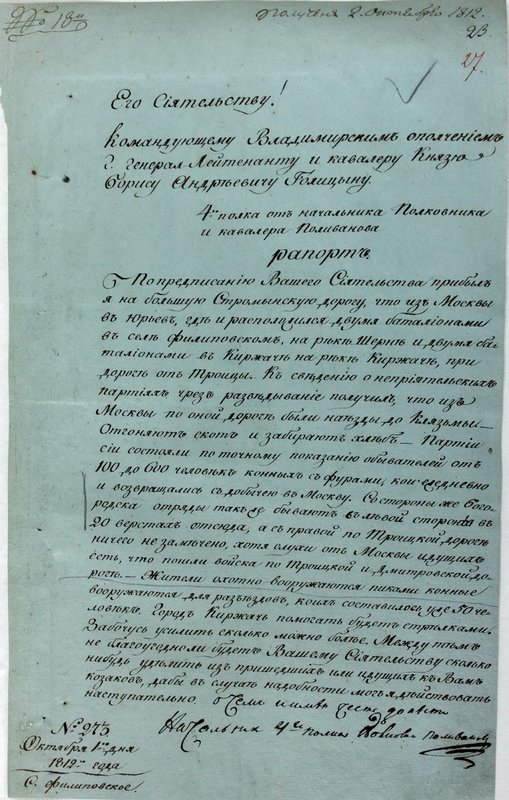 № 18й
Получена 2 октября 1812.
23
27.
Его Сіятельству!
Командующему Владимирскимъ ополченіемъ
Г. Генералъ Лейтенанту и кавалеру Князю
Борису Андрѣевичу Голицыну.
4го полка отъ начальника Полковника
и кавалера Поливанова
рапортъ
По предписанію Вашего Сіятельства прибылъ
я на большую Стромынскую дорогу, что изъ Москвы
въ Юрьевъ, гдѣ и расположился двумя баталіонами
въ селѣ Филиповскомъ, на рѣкѣ Шернѣ и двумя ба-
таліонами въ Киржачѣ на рѣкѣ Киржачѣ, при
дорогѣ отъ Троицы. Къ свѣденію о непріятельскихъ
партіяхъ чрезъ развѣдываніе получилъ, что изъ
Москвы по оной дорогѣ были наѣзды до Клязьмы –
Отгоняютъ скотъ и забираютъ хлѣбъ – Партіи
сіи состояли по точному показанію обывателей отъ
100 до 600 человѣкъ конныхъ съ фурами, кои ежедневно
и возвращались съ добычею въ Москву. Со стороны же Бого-
родска отряды также бываютъ въ лѣвой сторонѣ въ
20 верстахъ отсюда, а съ правой по Троицкой дорогѣ
ничего не замѣчено, хотя слухи отъ Москвы идущихъ
есть, что пошли войска по Троицкой и Дмитровской до-
рогѣ. – Жители охотно вооружаются пиками конные
вооружаются для разъѣздовъ, коихъ составилось уже 50 че-
ловѣкъ. Городъ Киржачъ помогать будетъ стрѣлками.
Забочусь усилить сколько можно болѣе. Между тѣмъ
не благоугодно ли будетъ Вашему Сіятельству сколько
нибудь удѣлить изъ пришедшихъ или идущихъ къ Вамъ
козаковъ, дабы въ случаѣ надобности могъ я дѣйствовать
наступательно о чемъ и имѣю честь донести
Начальникъ 4го полка Поливановъ
№ 273
Октября 1го дня
1812го года
С. Филиповское.